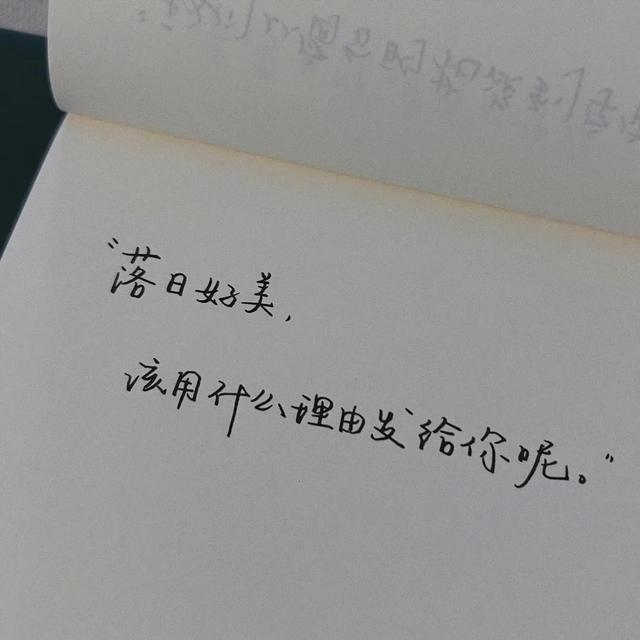 “落日好美，
该用什么理由发给你呢。”